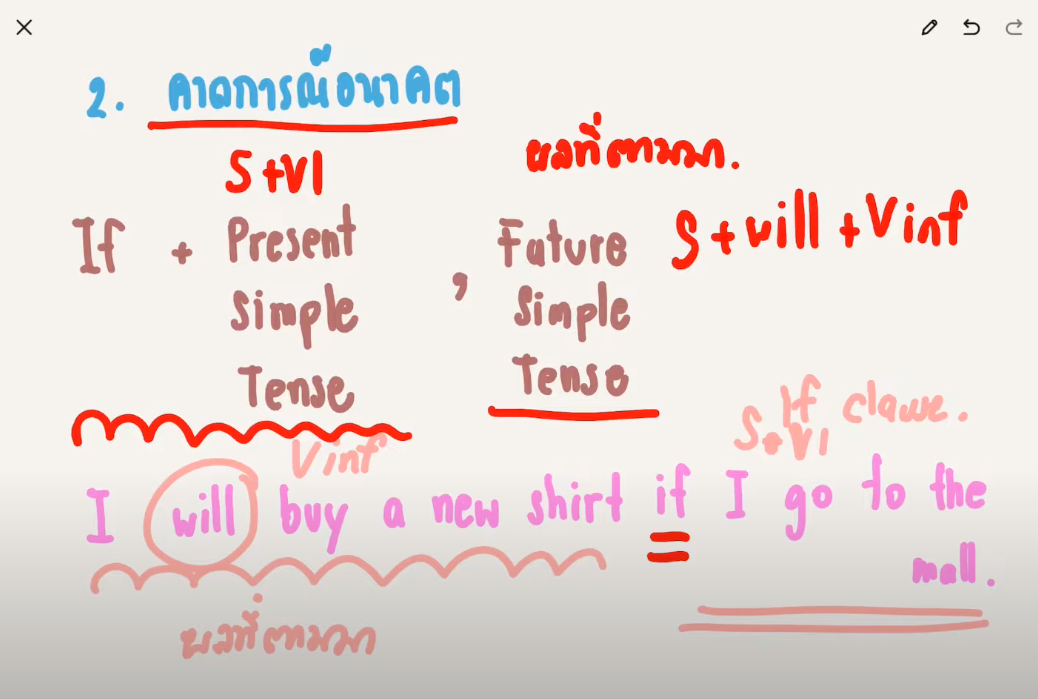 2. คาดการณ์อนาคต
S+V1
ผลที่ตามมา.
If + Present Simple Tense , Future Simple Tense
S+will+Vinf
If clause.
S+V1
Vinf
I will buy a new shirt if I go to the
mall.
ผลที่ตามมา